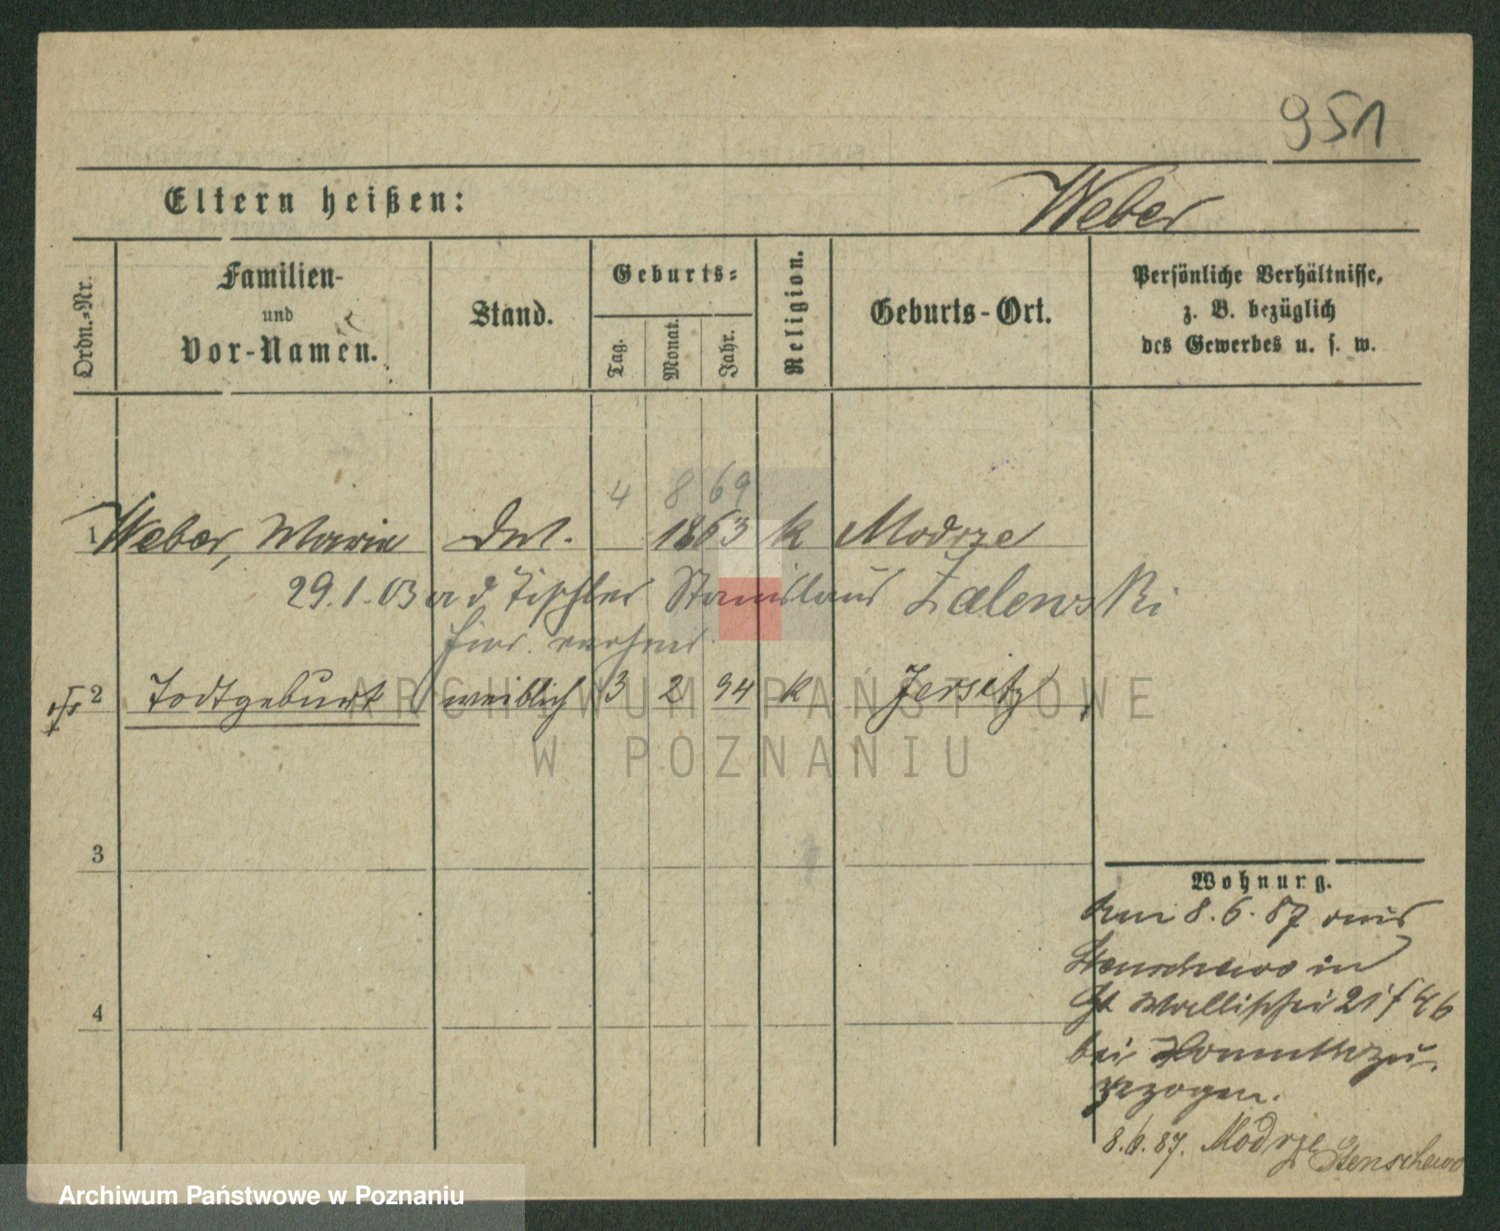 951
Eltern heißen:
Weber
Ordn.-Nr.
Familien-
und
Vor-Namen.
Stand.
Geburts-
Tag.
Monat.
Jahr.
Religion.
Geburts-Ort.
Persönliche Verhältnisse,
z. B. bezüglich
des Gewerbes u. s. w.
4 8 69
1 Weber, Marie 1863 k Modrze
29.1.03 a d Tischler Stanislaus Zalewski
2 Todtgeburt weiblich 3 2 94 k Jersitz
ARCHIWUM PAŃSTWOWE
W POZNANIU
3
Wohnung.
Am 8.6.87 aus
Stenschewo in
Wallischei 21
4
bei
gezogen.
8.6.87. Modrze Stenschewo
Archiwum Państwowe w Poznaniu